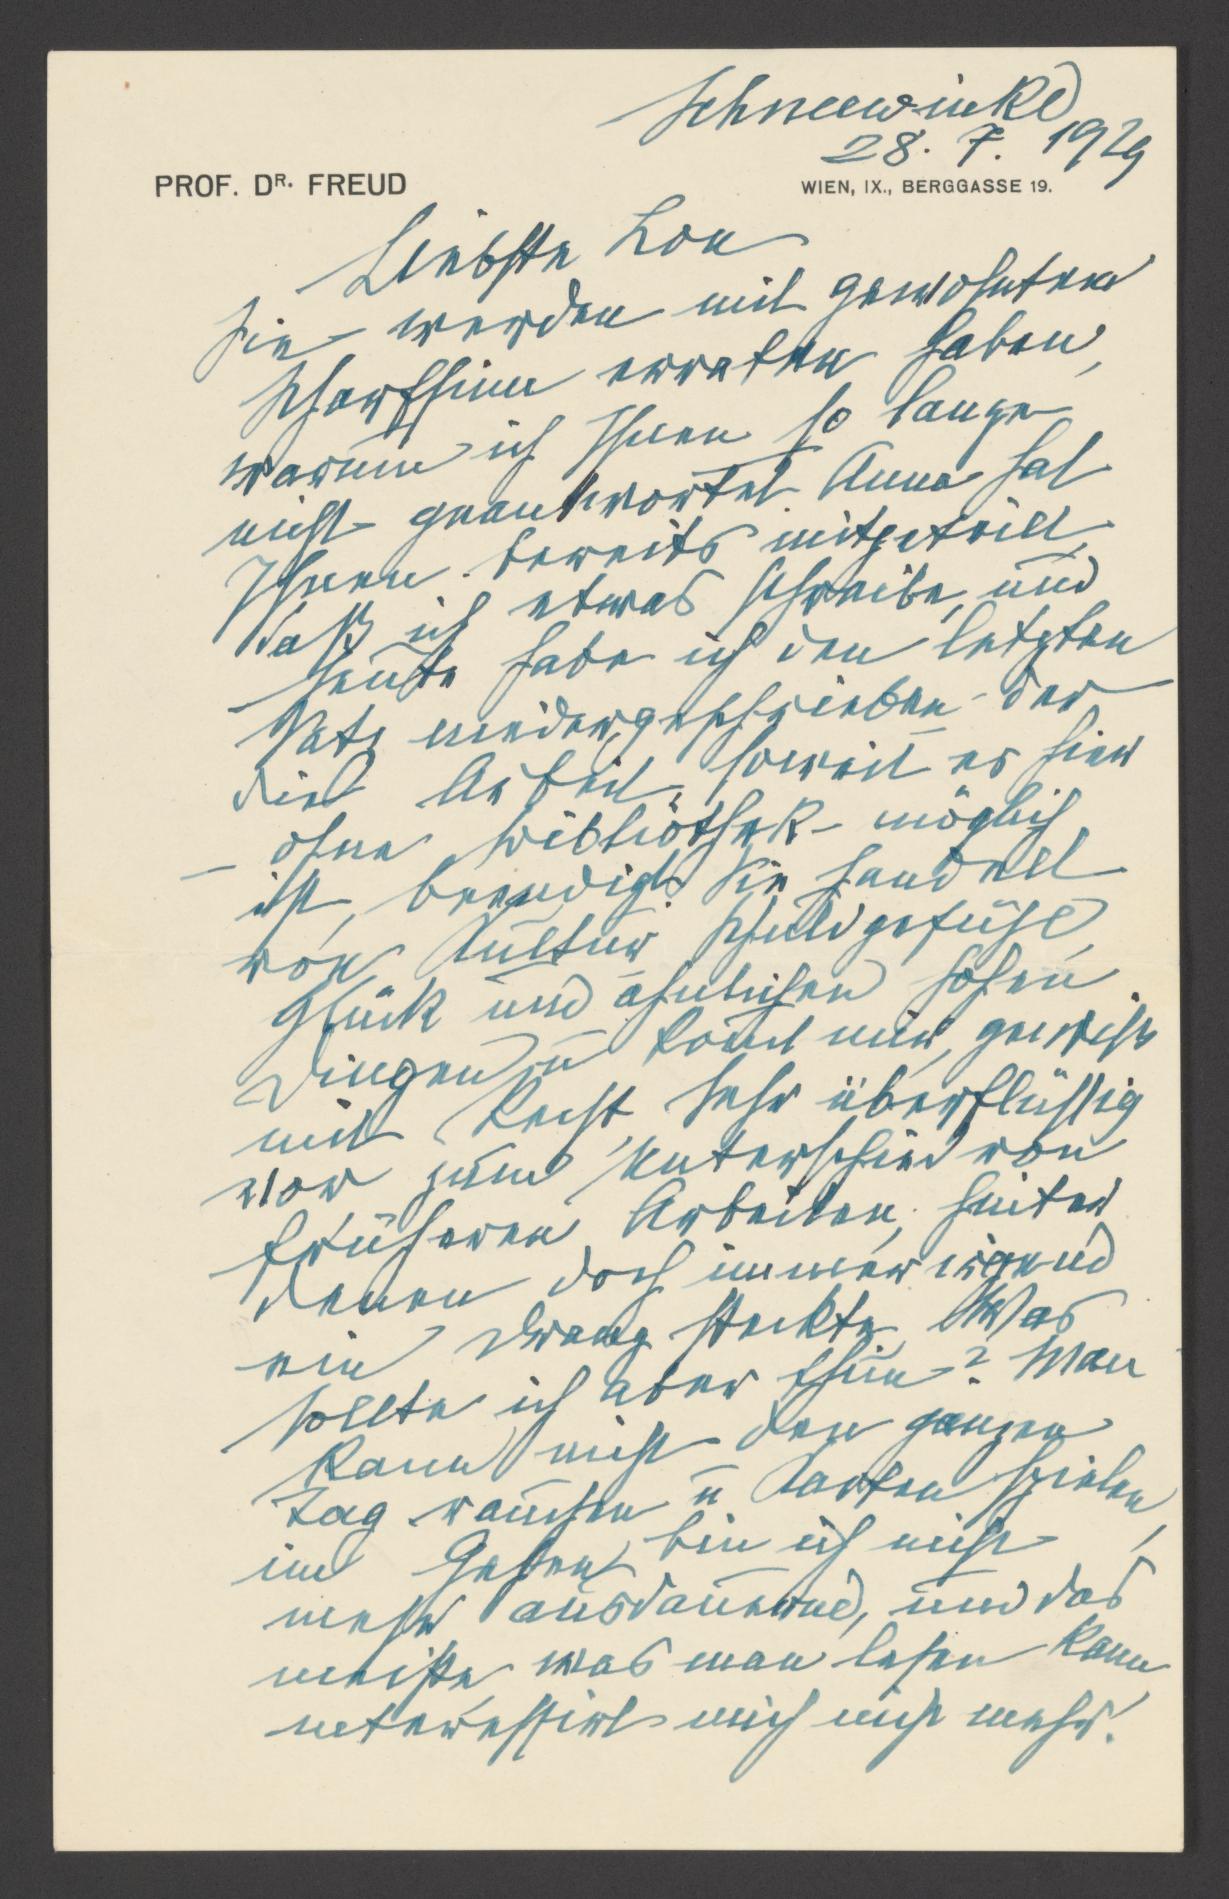 Schneewinkl
28. 7. 1929
PROF. DR. FREUD
WIEN, IX., BERGGASSE 19.
Liebste Lou
Sie werden mit gewohntem
Scharfsinn erraten haben,
warum ich Ihnen so lange
nicht geantwortet. Anna hat
Ihnen bereits mitgeteilt,
daß ich etwas schreibe, und
heute habe ich den letzten
Satz niedergeschrieben, der
die Arbeit, soweit es hier
ohne Bibliothek möglich
ist, beendigt. Sie handelt
von Kultur, Schuldgefühl,
Glück und ähnlichen hohen
Dingen u kommt mir, gewiß
mit Recht, sehr überflüssig
vor zum Unterschied von
früheren Arbeiten, hinter
denen doch immer irgend
ein Drang steckte. Was
sollte ich aber thun? Man
kann nicht den ganzen
Tag rauchen u Karten spielen,
im Gehen bin ich nicht
mehr ausdauernd, und das
meiste, was man lesen kann
interessirt mich nicht mehr.